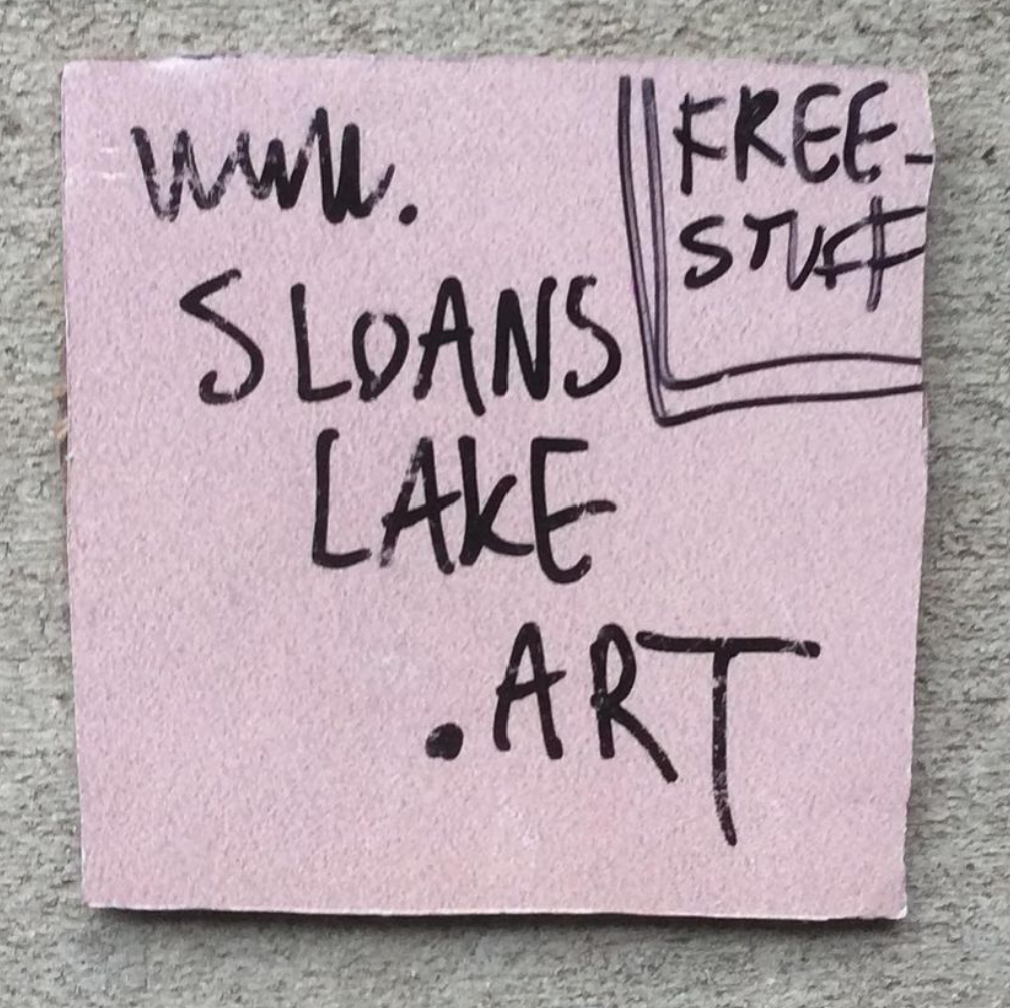 www.
SLOANS
LAKE
.ART
FREE-
STUFF